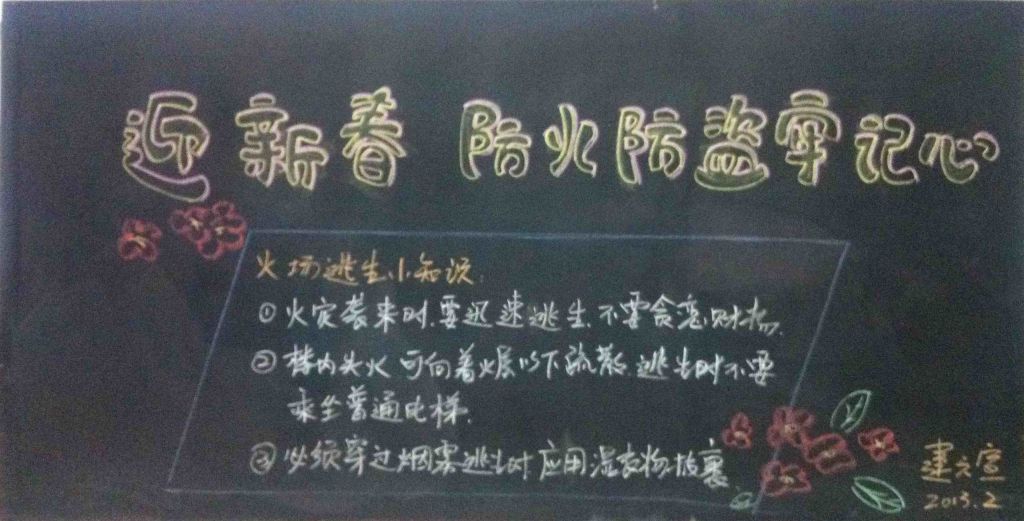 迎新春 防火防盗牢记心
火场逃生小知识
①火灾袭来时,要迅速逃生,不要贪恋财物.
②楼内失火 可向着火层以下疏散,逃生时不要
乘坐普通电梯.
③必须穿过烟雾逃生时,应用湿衣物披裹
建文宣
2013.2